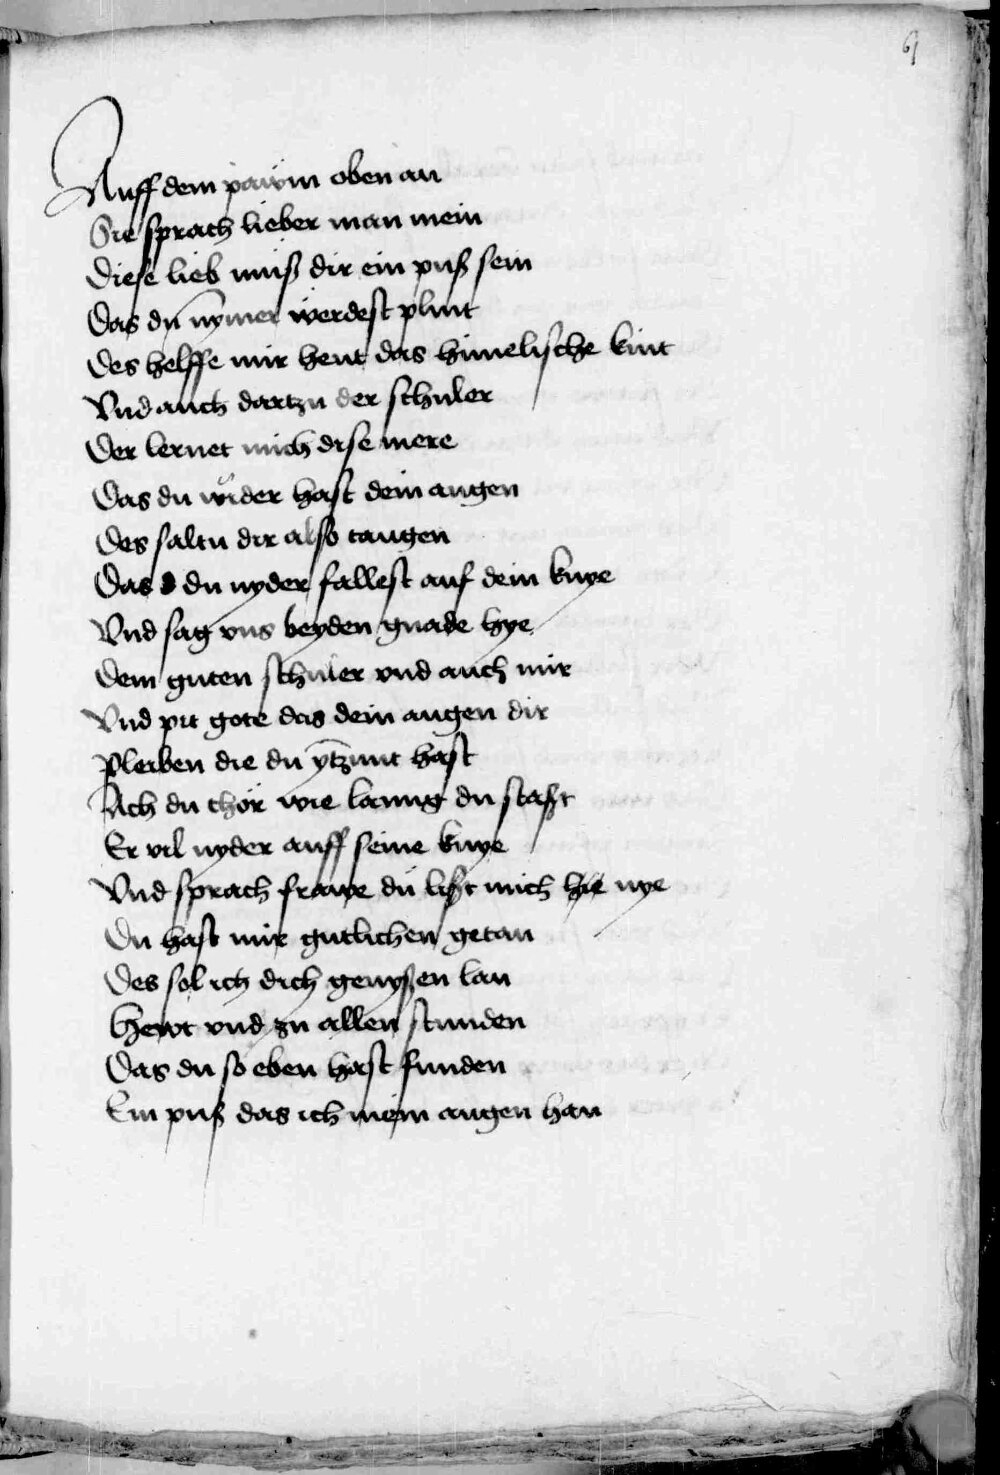 61
Auff dem päwm oben an
Sie sprach lieber man mein
Diese lieb muß dir ein puß sein
Das du nymer werdest plint
Des helffe mir heut das himelische kint
Vnd auch dartzu der schuler
Der lernet mich dise mere
Das du wider hast dein augen
Des saltu dir also taugen
Das du nyder fallest auf dein knye
Vnd sag vns beyden gnade hye
Dem guten schuler vnd auch mir
Vnd pit gote das dein augen dir
Pleiben die du ytzunt hast
Ach du thör wie lanng du stast
Er vil nyder auff seine knye
Vnd sprach frawe du liest mich hie nye
Du hast mir gutlichen getan
Des sol ich dich genyßen lan
Hewt vnd zu allen stunden
Das du so eben hast funden
Ein puß das ich mein augen han